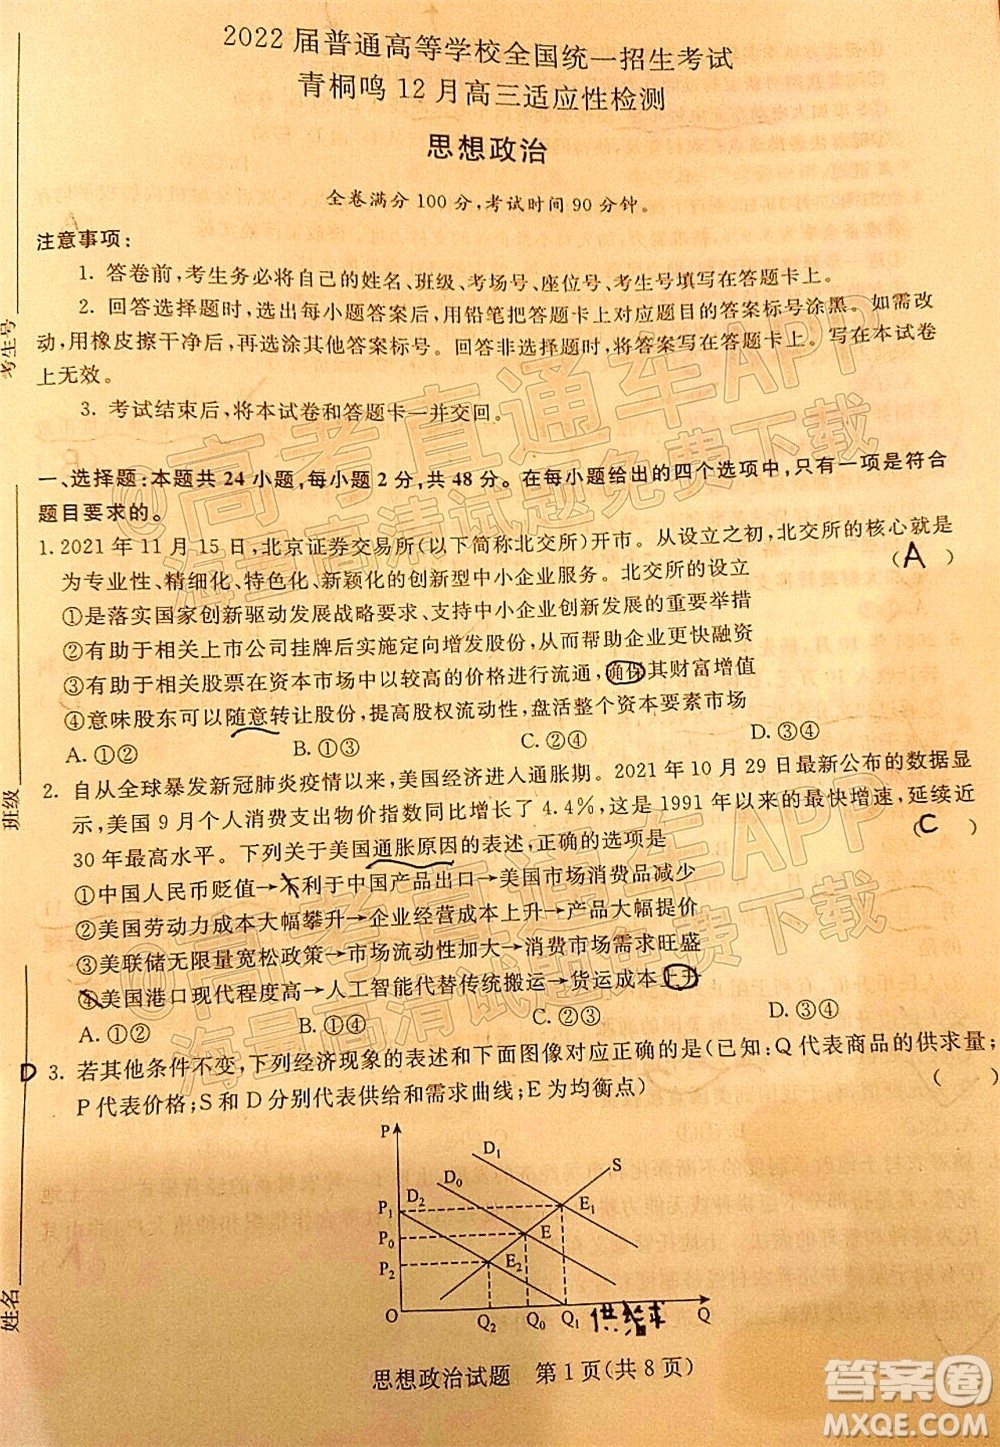 2022届普通高等学校全国统一招生考试
青桐鸣12月高三适应性检测
思想政治
全卷满分100分,考试时间90分钟。
注意事项:
1. 答卷前,考生务必将自己的姓名、班级、考场号、座位号、考生号填写在答题卡上。
2. 回答选择题时,选出每小题答案后,用铅笔把答题卡上对应题目的答案标号涂黑。如需改
动,用橡皮擦干净后,再选涂其他答案标号。回答非选择题时,将答案写在答题卡上。写在本试卷
上无效。
3. 考试结束后,将本试卷和答题卡一并交回。
一、选择题:本题共24小题,每小题2分,共48分。在每小题给出的四个选项中,只有一项是符合
题目要求的。
1. 2021年11月15日,北京证券交易所(以下简称北交所)开市。从设立之初,北交所的核心就是
为专业性、精细化、特色化、新颖化的创新型中小企业服务。北交所的设立 ( A )
①是落实国家创新驱动发展战略要求、支持中小企业创新发展的重要举措
②有助于相关上市公司挂牌后实施定向增发股份,帮助企业更快融资
③有助于相关股票在资本市场中以较高的价格进行流通,确保其财富增值
④意味股东可以随意转让股份,提高股权流动性,盘活整个资本要素市场
A. ①② B. ①③ C. ②④ D. ③④
2. 自从全球暴发新冠肺炎疫情以来,美国经济进入通胀期。2021年10月29日最新公布的数据显
示,美国9月个人消费支出物价指数同比增长了4.4%,这是1991年以来的最快增速,延续近
30年最高水平。下列关于美国通胀原因的表述,正确的选项是 ( C )
①中国人民币贬值→不利于中国产品出口→美国市场消费品减少
②美国劳动力成本大幅攀升→企业经营成本上升→产品提价
③美联储无限量宽松政策→市场流动性加大→消费市场需求旺盛
④美国港口现代程度高→人工智能代替传统搬运→货运成本上升
A. ①② B. ①④ C. ②③ D. ③④
D 3. 若其他条件不变,下列经济现象的表述和下面图像对应正确的是(已知:Q代表商品的供求量;
P代表价格;S和D分别代表供给和需求曲线;E为均衡点) ( )
P D₁ D₀ D₂ S
P₁ E₁
P₀ E
P₂ E₂
O Q₂ Q₀ Q₁ 供给求 Q
思想政治试题 第1页(共8页)
考生号
班级
姓名
@高考直通车APP
海量高清试题免费下载
@高考直通车APP
海量高清试题免费下载
答案圈
MXQE.COM